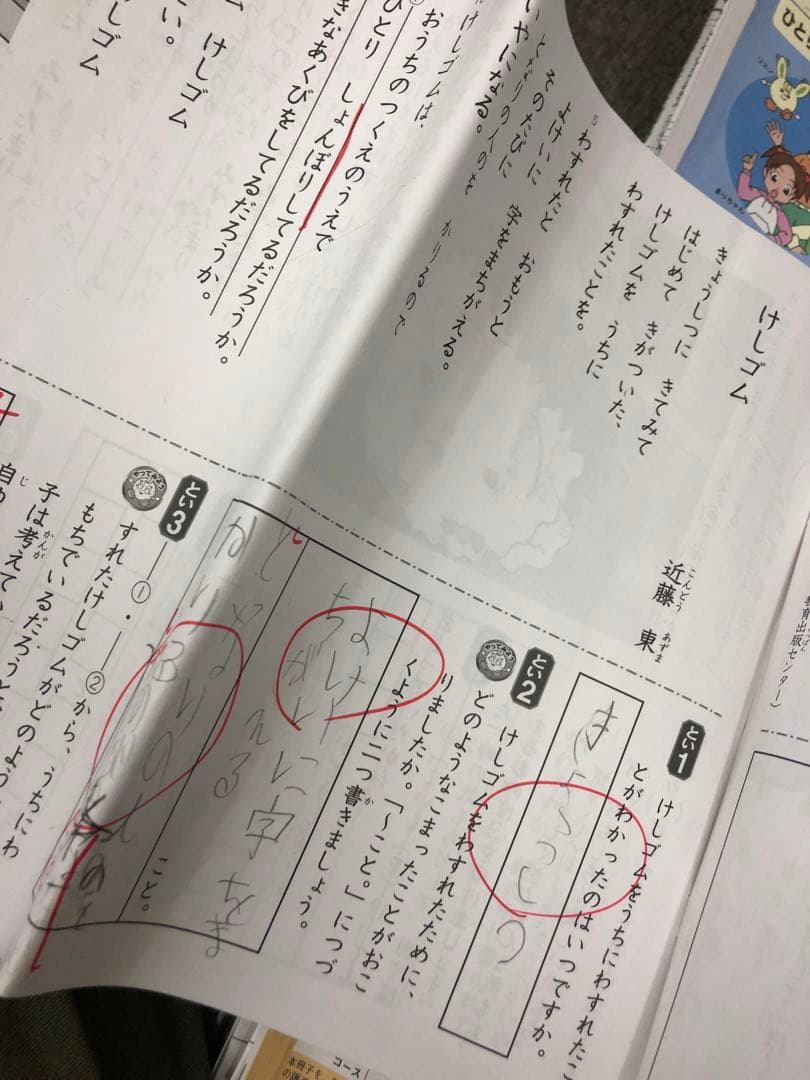 けしゴム
近藤 東
こんどう
あずま
きょうしつに きてみて
はじめて きがついた、
けしゴムを うちに
わすれたことを。
5
わすれたと おもうと
そのたびに 字をまちがえる。
よけいに
いやになる。
とがりの人のを かりるので
けしゴムは、
おうちのつくえのうえで
ひとり しょんぼりしてるだろうか。
きなあくびをしてるだろうか。
けしゴム
けしゴム
とい1
けしゴムをうちにわすれたこ
とがわかったのはいつですか。
とい2
けしゴムをわすれたために、
どのようなこまったことがおこ
りましたか。「〜こと。」につづ
くように二つ書きましょう。
か
よけいに字をま
ちがえる
こと。
とい3
①・②から、うちにわ
すれたけしゴムがどのよう
もちでいるだろうと
子は考えて、
かんが
自
じ
教育出版センター）
まりちゃん
リスン
ひと
コース
本冊子を